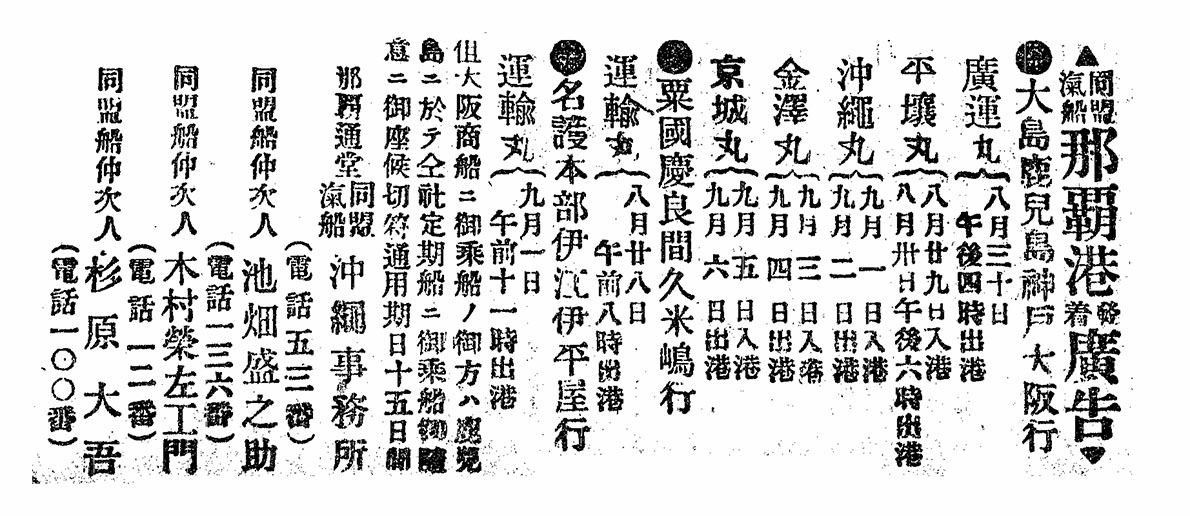 ▲同盟汽船那覇港發着廣告▼
●大島鹿兒島神戸大阪行
廣運丸
八月三十日
午後四時出港
平壤丸
八月廿九日入港
八月卅日午後六時出港
沖繩丸
九月一日入港
九月二日出港
金澤丸
九月三日入港
九月四日出港
京城丸
九月五日入港
九月六日出港
●粟國慶良間久米嶋行
運輸丸
八月廿八日
午前八時出港
●名護本部伊江伊平屋行
運輸丸
九月一日
午前十一時出港
但大阪商船ニ御乘船ノ御方ハ鹿兒
島ニ於テ仝社定期船ニ御乘船御隨
意ニ御座候切符通用期日十五日間
那覇通堂 同盟汽船 沖繩事務所
(電話五三番)
同盟船仲次人 池畑盛之助
(電話一三六番)
同盟船仲次人 木村榮左工門
(電話一二番)
同盟船仲次人 杉原大吾
(電話一〇〇番)